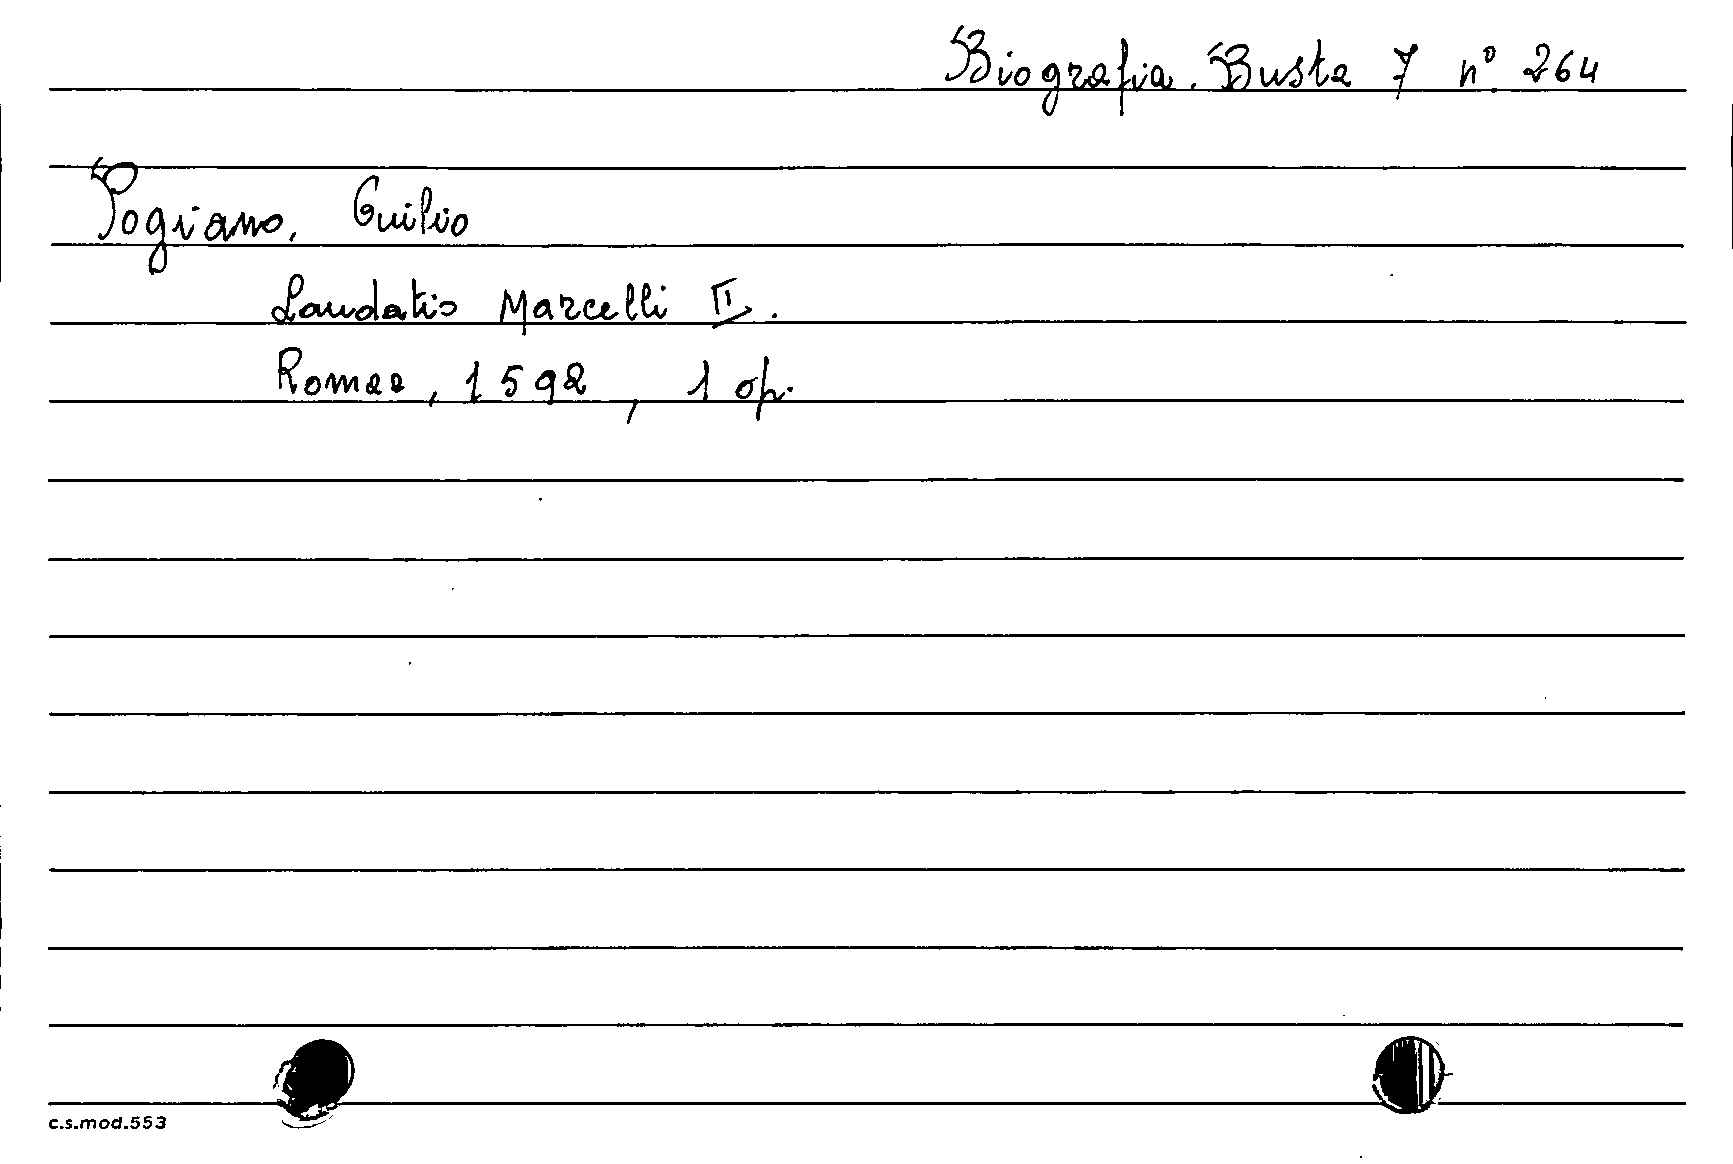 Biografia. Busta 7 nº 264
Pogiano, Guilio
Laudatio Marcelli II.
Romae, 1592, 1 op.
c.s.mod.553